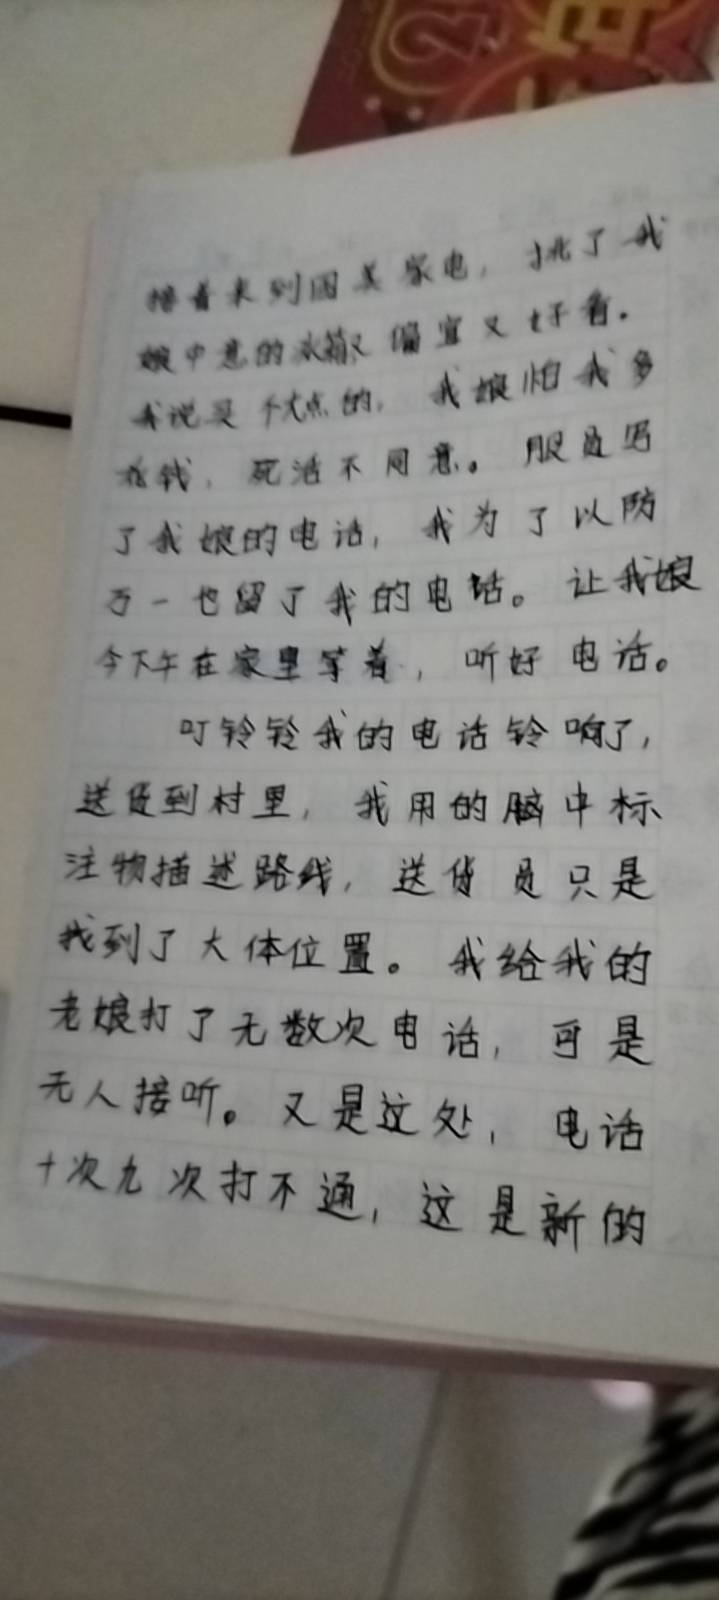 接着来到国美家电，挑了我
娘中意的冰箱又便宜又好看。
我说买个大点的，我娘怕我多
花钱，死活不同意。服员写
了我娘的电话，我为了以防
万一也留了我的电话。让我娘
今下午在家里等着，听好电话。
叮铃铃我的电话铃响了，
送货到村里，我用的脑中标
注物描述路线，送货员只是
找到了大体位置。我给我的
老娘打了无数次电话，可是
无人接听。又是这处，电话
十次九次打不通，这是新的